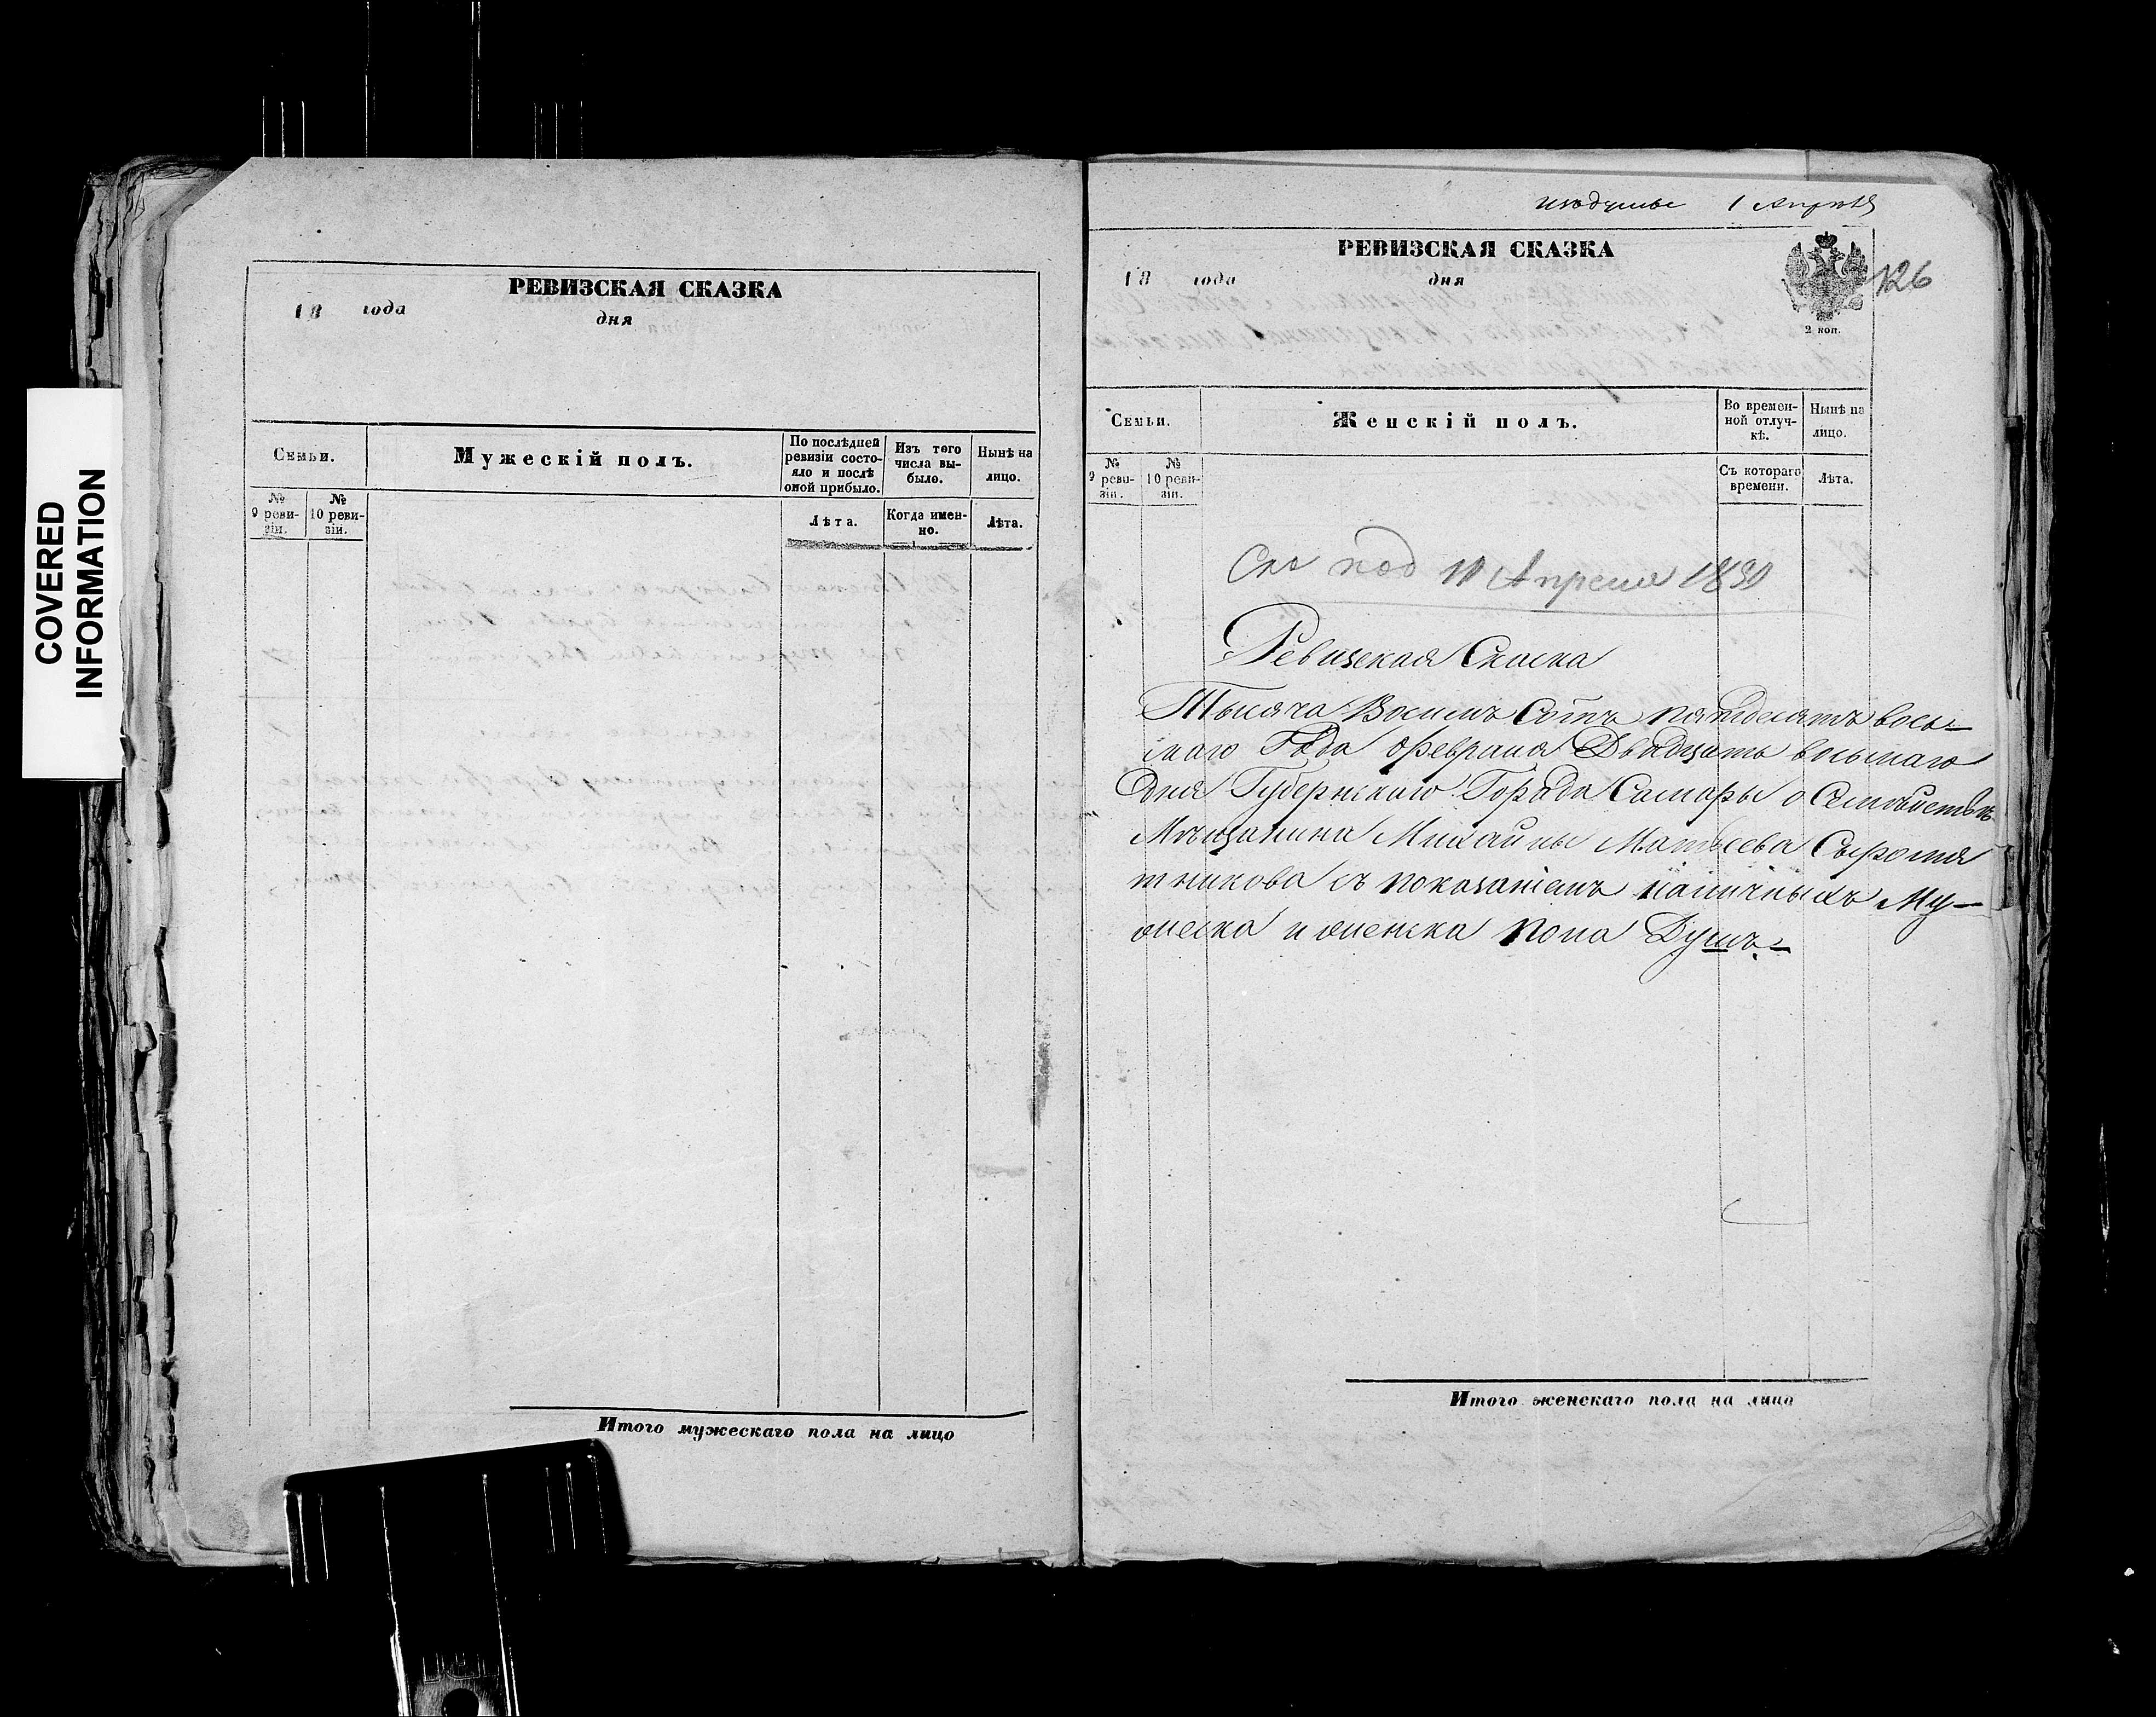 COVERED
INFORMATION
РЕВИЗСКАЯ СКАЗКА
18 года дня
Семьи.
Мужескій полъ.
По послѣдней ревизіи состояло и послѣ оной прибыло.
Изъ того числа выбыло.
Нынѣ на лицо.
№ 9 ревизіи.
№ 10 ревизіи.
Лѣта.
Когда именно.
Лѣта.
Итого мужескаго пола на лицо
1 Апрѣля
РЕВИЗСКАЯ СКАЗКА
18 года дня
2 коп.
126
Семьи.
Женскій полъ.
Во временной отлучкѣ.
Нынѣ на лицо.
№ 9 ревизіи.
№ 10 ревизіи.
Съ котораго времени.
Лѣта.
под Апреля
Ревизская Скаска
Тысяча Восемь Сотъ пятдесятъ вось-
маго Года февраля Двадцать восьмаго
дня Губернскаго Города Самары о Семѣйствѣ
Мѣщанина Михайлы Матвеева Сыромя
тникова съ показаніемъ наличныхъ Му-
жеска и женска пола Душъ.-
Итого женскаго пола на лицо